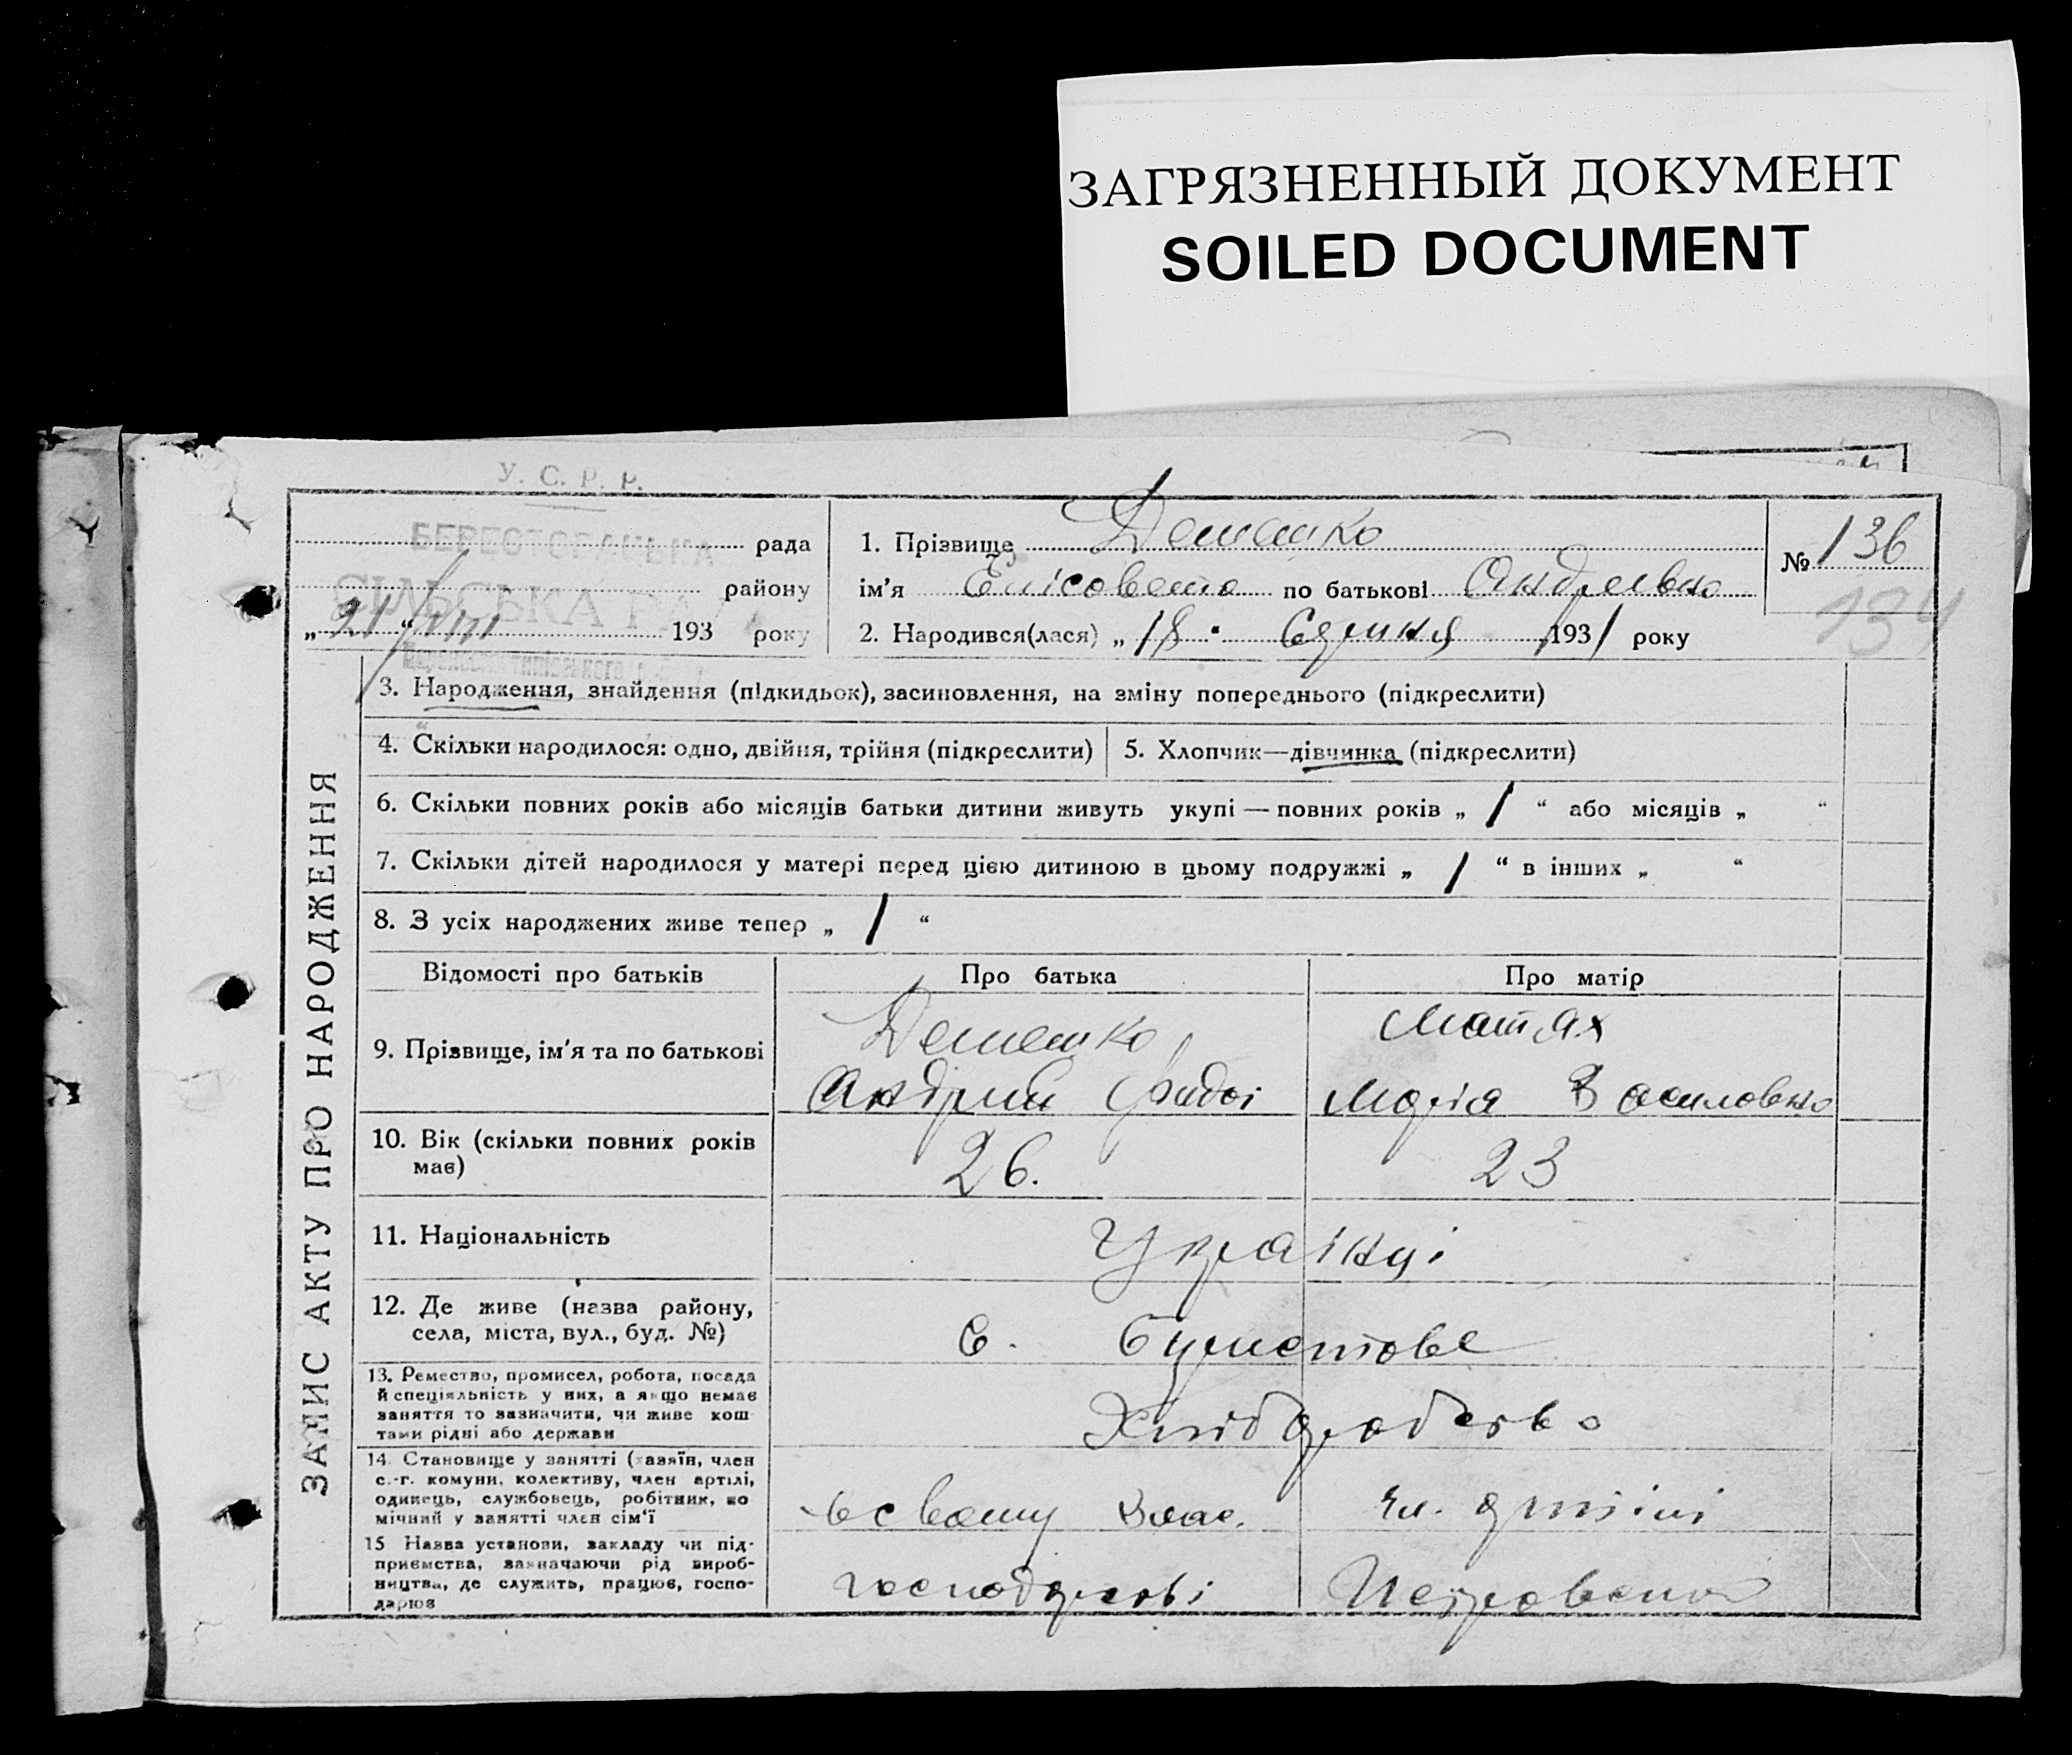 ЗАГРЯЗНЕННЫЙ ДОКУМЕНТ
SOILED DOCUMENT
У. С. Р. Р.
рада
району
СІЛЬСЬКА РАДА
„ 21 “ VIII 193 року
1. Прізвище
ім'я Єлісовета по батькові Андреевно
2. Народився(лася) „ 18 “ Серпня 1931 року
№ 136
134
ЗАПИС АКТУ ПРО НАРОДЖЕННЯ
3. Народження, знайдення (підкидьок), засиновлення, на зміну попереднього (підкреслити)
4. Скільки народилося: одно, двійня, трійня (підкреслити)
5. Хлопчик—дівчинка (підкреслити)
6. Скільки повних років або місяців батьки дитини живуть укупі — повних років „ 1 “ або місяців „ “
7. Скільки дітей народилося у матері перед цією дитиною в цьому подружжі „ 1 “ в інших „ “
8. З усіх народжених живе тепер „ 1 “
Відомості про батьків
Про батька
Про матір
9. Прізвище, ім'я та по батькові
Матях
Андрий
Марія Василовно
10. Вік (скільки повних років
має)
26.
23
11. Національність
Українці
12. Де живе (назва району,
села, міста, вул., буд. №)
с.
13. Ремество, промисел, робота, посада
й спеціяльність у них, а якщо немає
заняття то зазначити, чи живе кош
тами рідні або держави
Хліборобство
14. Становище у занятті (хазяїн, член
с.-г. комуни, колективу, член артілі,
одинець, службовець, робітник, по
мічний у занятті член сім'ї
в своему влас.
чл. артілі
15 Назва установи, закладу чи під-
приємства, зазначаючи рід вироб-
ництва, де служить, працює, госпо-
дарює
господарстві
Петровского